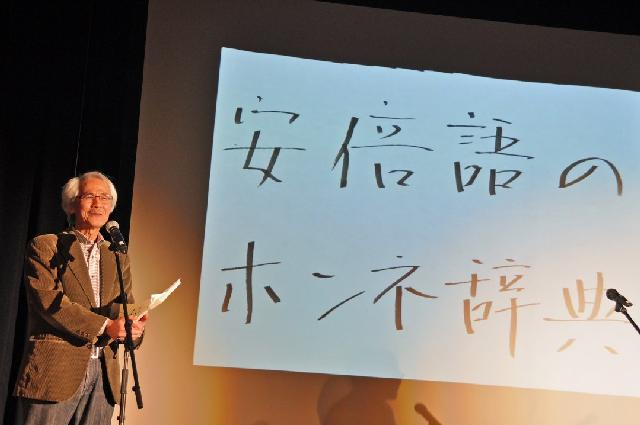 安倍語の
ホンネ辞典